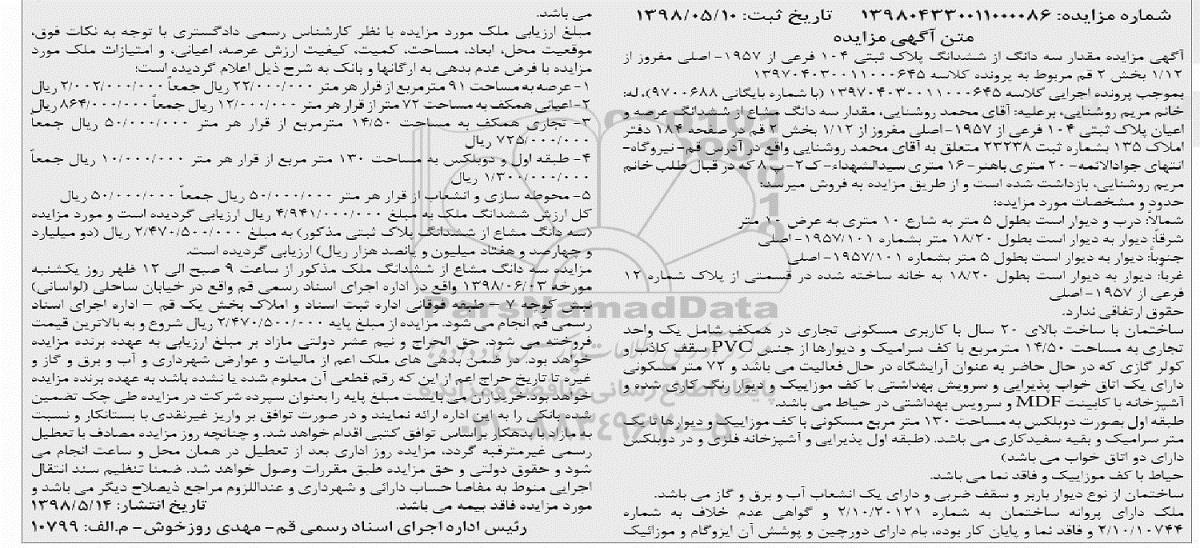 شماره مزایده: ۱۳۹۸۰۴۳۳۰۰۱۱۰۰۰۰۸۶ تاریخ ثبت: ۱۳۹۸/۰۵/۱۰
متن آگهی مزایده
آگهی مزایده مقدار سه دانگ از ششدانگ پلاک ثبتی ۱۰۴ فرعی از ۱۹۵۷- اصلی مفروز از
۱/۱۲ بخش ۲ قم مربوط به پرونده کلاسه ۱۳۹۷۰۴۰۳۰۰۱۱۰۰۰۶۴۵
بموجب پرونده اجرایی کلاسه ۱۳۹۷۰۴۰۳۰۰۱۱۰۰۰۶۴۵ (با شماره بایگانی ۹۷۰۰۶۸۸)، له:
خانم مریم روشنایی، برعلیه: آقای محمد روشنایی، مقدار سه دانگ مشاع از ششدانگ عرصه و
اعیان پلاک ثبتی ۱۰۴ فرعی از ۱۹۵۷- اصلی مفروز از ۱/۱۲ بخش ۲ قم در صفحه ۱۸۴ دفتر
املاک ۱۳۵ بشماره ثبت ۲۳۲۳۸ متعلق به آقای محمد روشنایی واقع در آدرس قم- نیروگاه-
انتهای جوادالائمه- ۲۰ متری باهنر- ۱۶ متری سیدالشهداء- ک۲- پ۸ که در قبال طلب خانم
مریم روشنایی، بازداشت شده است و از طریق مزایده به فروش میرسد:
حدود و مشخصات مورد مزایده:
شمالاً: درب و دیوار است بطول ۵ متر به شارع ۱۰ متری به عرض ۱۰ متر
شرقاً: دیوار به دیوار است بطول ۱۸/۲۰ متر بشماره ۱۹۵۷/۱۰۱- اصلی
جنوباً: دیوار به دیوار است بطول ۵ متر بشماره ۱۹۵۷/۱۰۱- اصلی
غربا: دیوار به دیوار است بطول ۱۸/۲۰ به خانه ساخته شده در قسمتی از پلاک شماره ۱۲
فرعی از ۱۹۵۷- اصلی
حقوق ارتفاقی ندارد.
ساختمان با ساخت بالای ۲۰ سال با کاربری مسکونی تجاری در همکف شامل یک واحد
تجاری به مساحت ۱۴/۵۰ مترمربع با کف سرامیک و دیوارها از جنس PVC سقف کاذب و
کولر گازی که در حال حاضر به عنوان آرایشگاه در حال فعالیت می باشد و ۷۲ متر مسکونی
دارای یک اتاق خواب پذیرایی و سرویس بهداشتی با کف موزاییک و دیوار رنگ کاری شده و
آشپزخانه با کابینت MDF و سرویس بهداشتی در حیاط می باشد.
طبقه اول بصورت دوبلکس به مساحت ۱۳۰ متر مربع مسکونی با کف موزاییک و دیوارها تا یک
متر سرامیک و بقیه سفیدکاری می باشد. (طبقه اول پذیرایی و آشپزخانه فلزی و در دوبلکس
دارای دو اتاق خواب می باشد)
حیاط با کف موزاییک و فاقد نما می باشد.
ساختمان از نوع دیوار باربر و سقف ضربی و دارای یک انشعاب آب و برق و گاز می باشد.
ملک دارای پروانه ساختمان به شماره ۲/۱۰/۲۰۱۲۱ و گواهی عدم خلاف به شماره
۲/۱۰/۱۰۷۴۴ و فاقد نما و پایان کار بوده، بام دارای دورچین و پوشش آن ایزوگام و موزائیک
می باشد.
مبلغ ارزیابی ملک مورد مزایده با نظر کارشناس رسمی دادگستری با توجه به نکات فوق،
موقعیت محل، ابعاد، مساحت، کمیت، کیفیت ارزش عرصه، اعیانی، و امتیازات ملک مورد
مزایده با فرض عدم بدهی به ارگانها و بانک به شرح ذیل اعلام گردیده است:
۱- عرصه به مساحت ۹۱ مترمربع از قرار هر متر ۲۲/۰۰۰/۰۰۰ ریال جمعاً ۲/۰۰۲/۰۰۰/۰۰۰ ریال
۲- اعیانی همکف به مساحت ۷۲ متر از قرار هر متر ۱۲/۰۰۰/۰۰۰ ریال جمعاً ۸۶۴/۰۰۰/۰۰۰ ریال
۳- تجاری همکف به مساحت ۱۴/۵۰ مترمربع از قرار هر متر ۵۰/۰۰۰/۰۰۰ ریال جمعاً
۷۲۵/۰۰۰/۰۰۰ ریال
۴- طبقه اول و دوبلکس به مساحت ۱۳۰ متر مربع از قرار هر متر ۱۰/۰۰۰/۰۰۰ ریال جمعاً
۱/۳۰۰/۰۰۰/۰۰۰ ریال
۵- محوطه سازی و انشعاب از قرار هر متر ۵۰/۰۰۰/۰۰۰ ریال جمعاً ۵۰/۰۰۰/۰۰۰ ریال
کل ارزش ششدانگ ملک به مبلغ ۴/۹۴۱/۰۰۰/۰۰۰ ریال ارزیابی گردیده است و مورد مزایده
(سه دانگ مشاع از ششدانگ پلاک ثبتی مذکور) به مبلغ ۲/۴۷۰/۵۰۰/۰۰۰ ریال (دو میلیارد
و چهارصد و هفتاد میلیون و پانصد هزار ریال) ارزیابی گردیده است.
مزایده سه دانگ مشاع از ششدانگ ملک مذکور از ساعت ۹ صبح الی ۱۲ ظهر روز یکشنبه
مورخه ۱۳۹۸/۰۶/۰۳ واقع در اداره اجرای اسناد رسمی قم واقع در خیابان ساحلی (لواسانی)
نبش کوچه ۷ - طبقه فوقانی اداره ثبت اسناد و املاک بخش یک قم - اداره اجرای اسناد
رسمی قم انجام می شود. مزایده از مبلغ پایه ۲/۴۷۰/۵۰۰/۰۰۰ ریال شروع و به بالاترین قیمت
فروخته می شود. حق الحراج و نیم عشر دولتی مازاد بر مبلغ ارزیابی به عهده برنده مزایده
خواهد بود. در ضمن بدهی های ملک اعم از مالیات و عوارض شهرداری و آب و برق و گاز و
غیره تا تاریخ حراج اعم از این که رقم قطعی آن معلوم شده یا نشده باشد به عهده برنده مزایده
خواهد بود. خریداران می بایست مبلغ پایه را بعنوان سپرده شرکت در مزایده طی چک تضمین
شده بانکی را به این اداره ارائه نمایند و در صورت توافق بر واریز غیرنقدی با بستانکار و نسبت
به مازاد با بدهکار براساس توافق کتبی اقدام خواهد شد. و چنانچه روز مزایده مصادف با تعطیل
رسمی غیرمترقبه گردد، مزایده روز اداری بعد از تعطیل در همان محل و ساعت انجام می
شود و حقوق دولتی و حق مزایده طبق مقررات وصول خواهد شد. ضمنا تنظیم سند انتقال
اجرایی منوط به مفاصا حساب دارائی و شهرداری و عنداللزوم مراجع ذیصلاح دیگر می باشد و
مورد مزایده فاقد بیمه می باشد. تاریخ انتشار: ۱۳۹۸/۵/۱۴
رئیس اداره اجرای اسناد رسمی قم- مهدی روزخوش- م.الف: ۱۰۷۹۹
ParsNamadData
پایگاه اطلاع رسانی مناقصه و مزایده
۰۲۱-۸۸۳۴۹۶۷۰-۵